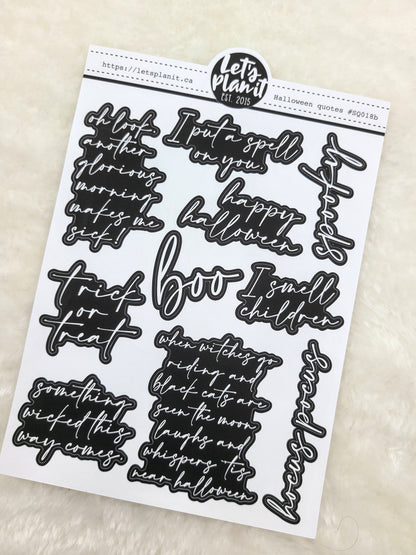 https://letsplanit.ca
Let's
Planit
EST. 2015
Halloween quotes #SQ018b
oh look
another
glorious
morning
makes me
sick!
I put a spell
on you.
happy
halloween
boo
trick
or
treat
I smell
children
something
wicked this
way comes.
when witches go
riding and
black cats are
seen the moon
laughs and
whispers 'tis
near halloween
hocus pocus